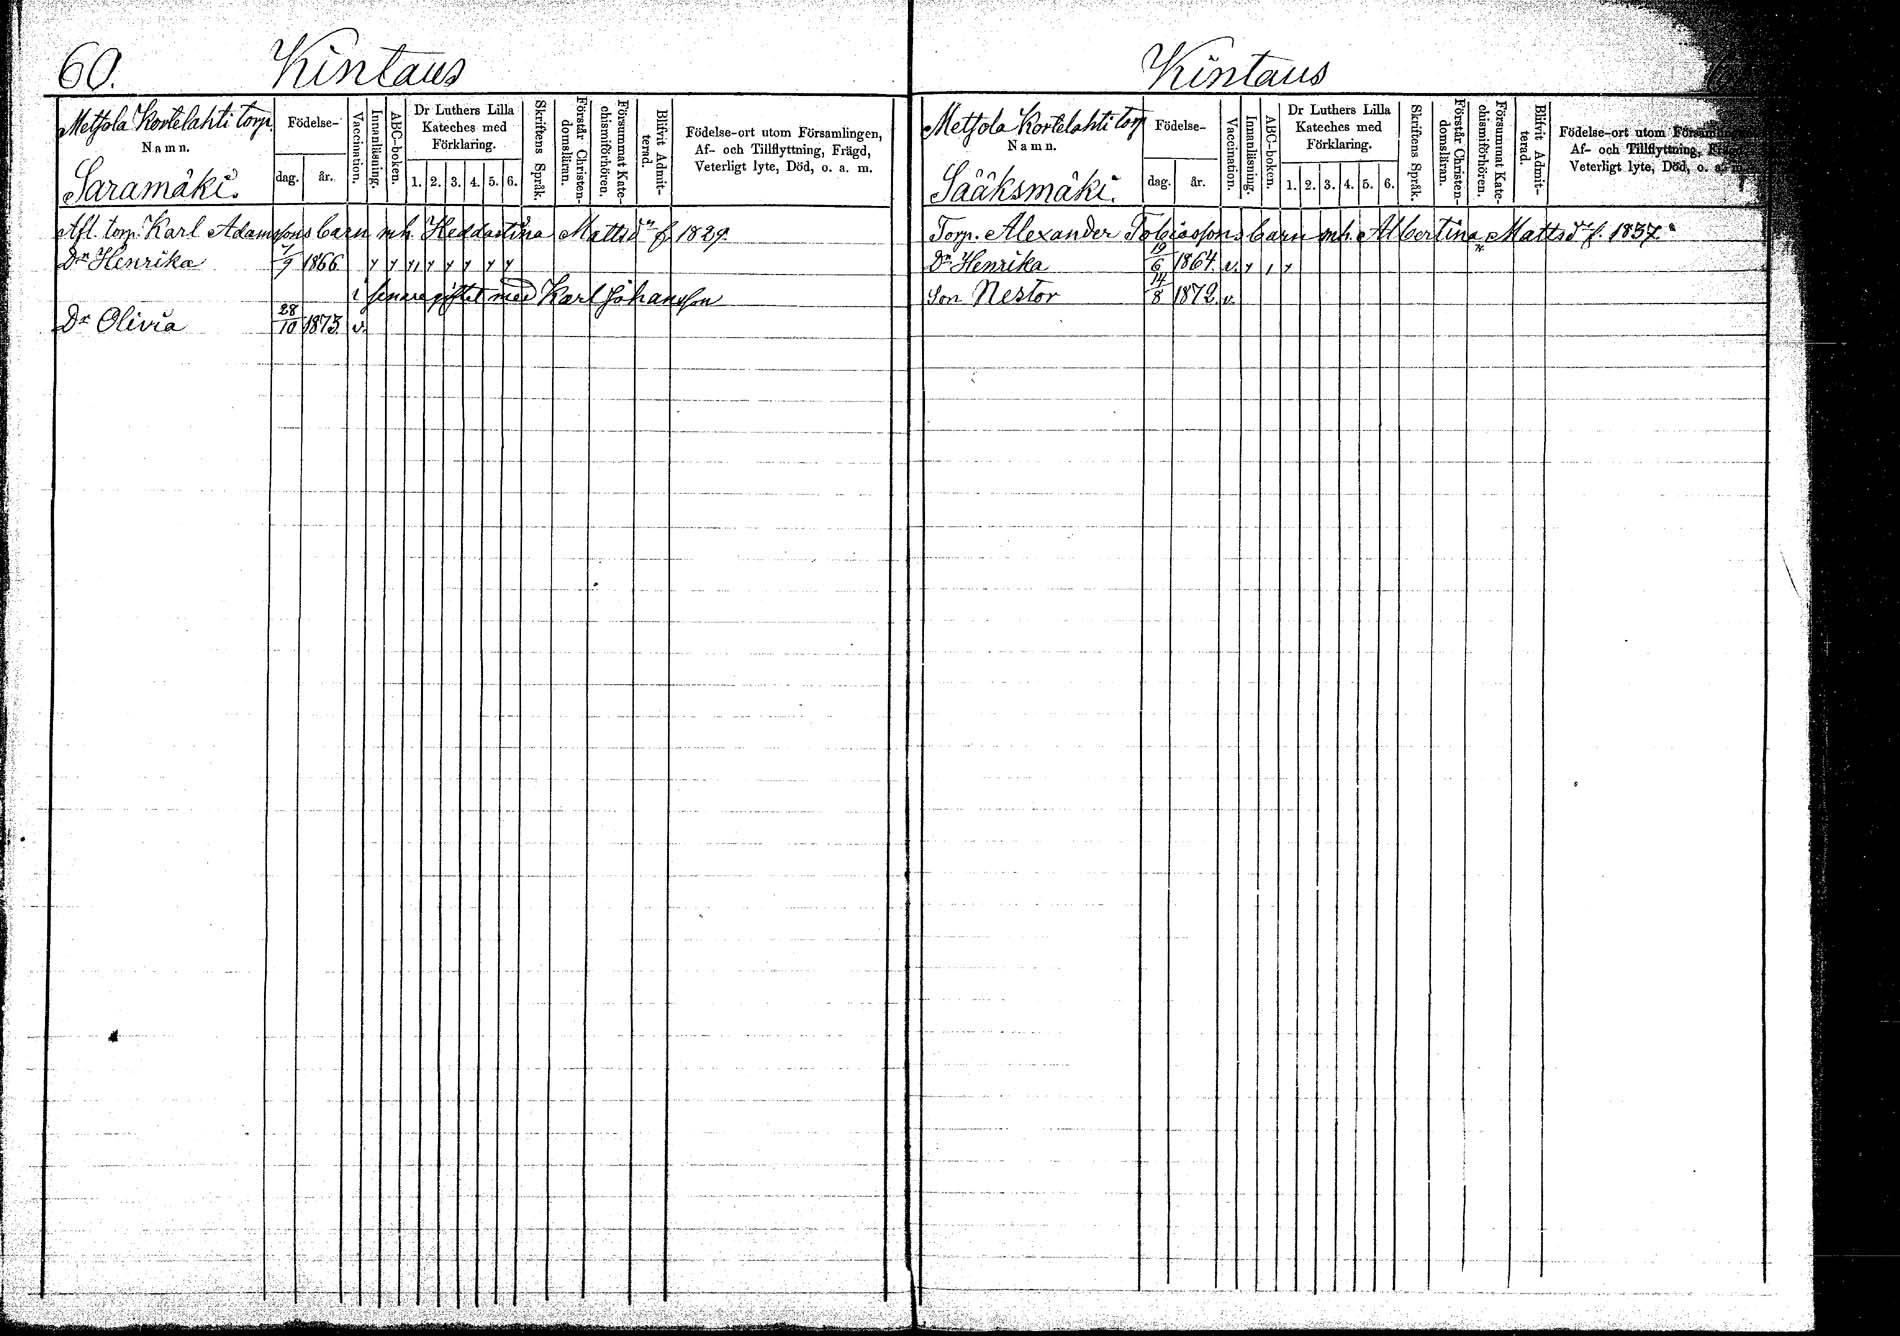 60. Kintaus
Metsola Kortelahti torp.
Namn.
Saramäki.
Födelse-
dag. år.
Vaccination.
Innanläsning.
ABC-boken.
Dr Luthers Lilla
Kateches med
Förklaring.
1. 2. 3. 4. 5. 6.
Skriftens Språk.
Förstår Christen-
domsläran.
Försummat Kate-
chismiförhören.
Blifvit Admit-
terad.
Födelse-ort utom Församlingen,
Af- och Tillflyttning, Frägd,
Veterligt lyte, Död, o. a. m.
Afl. torp. Karl Adamssons barn m.h. Heddastina Mattsdr f. 1829.
Dr Henrika 7/9 1866. y y y y y y y y
i senare giftet med Karl Johansson
Dr Olivia 28/10 1873. v.
Kintaus
Metsola Kortelahti torp
Namn.
Sääksmäki.
Födelse-
dag. år.
Vaccination.
Innanläsning.
ABC-boken.
Dr Luthers Lilla
Kateches med
Förklaring.
1. 2. 3. 4. 5. 6.
Skriftens Språk.
Förstår Christen-
domsläran.
Försummat Kate-
chismiförhören.
Blifvit Admit-
terad.
Födelse-ort utom Församlingen,
Af- och Tillflyttning, Frägd,
Veterligt lyte, Död, o. a. m.
Torp. Alexander Tobiassons barn m.h. Albertina Mattsdr f. 1837.
Dr Henrika 19/6 1864. v. y 1 y
Son Nestor 14/8 1872. v.